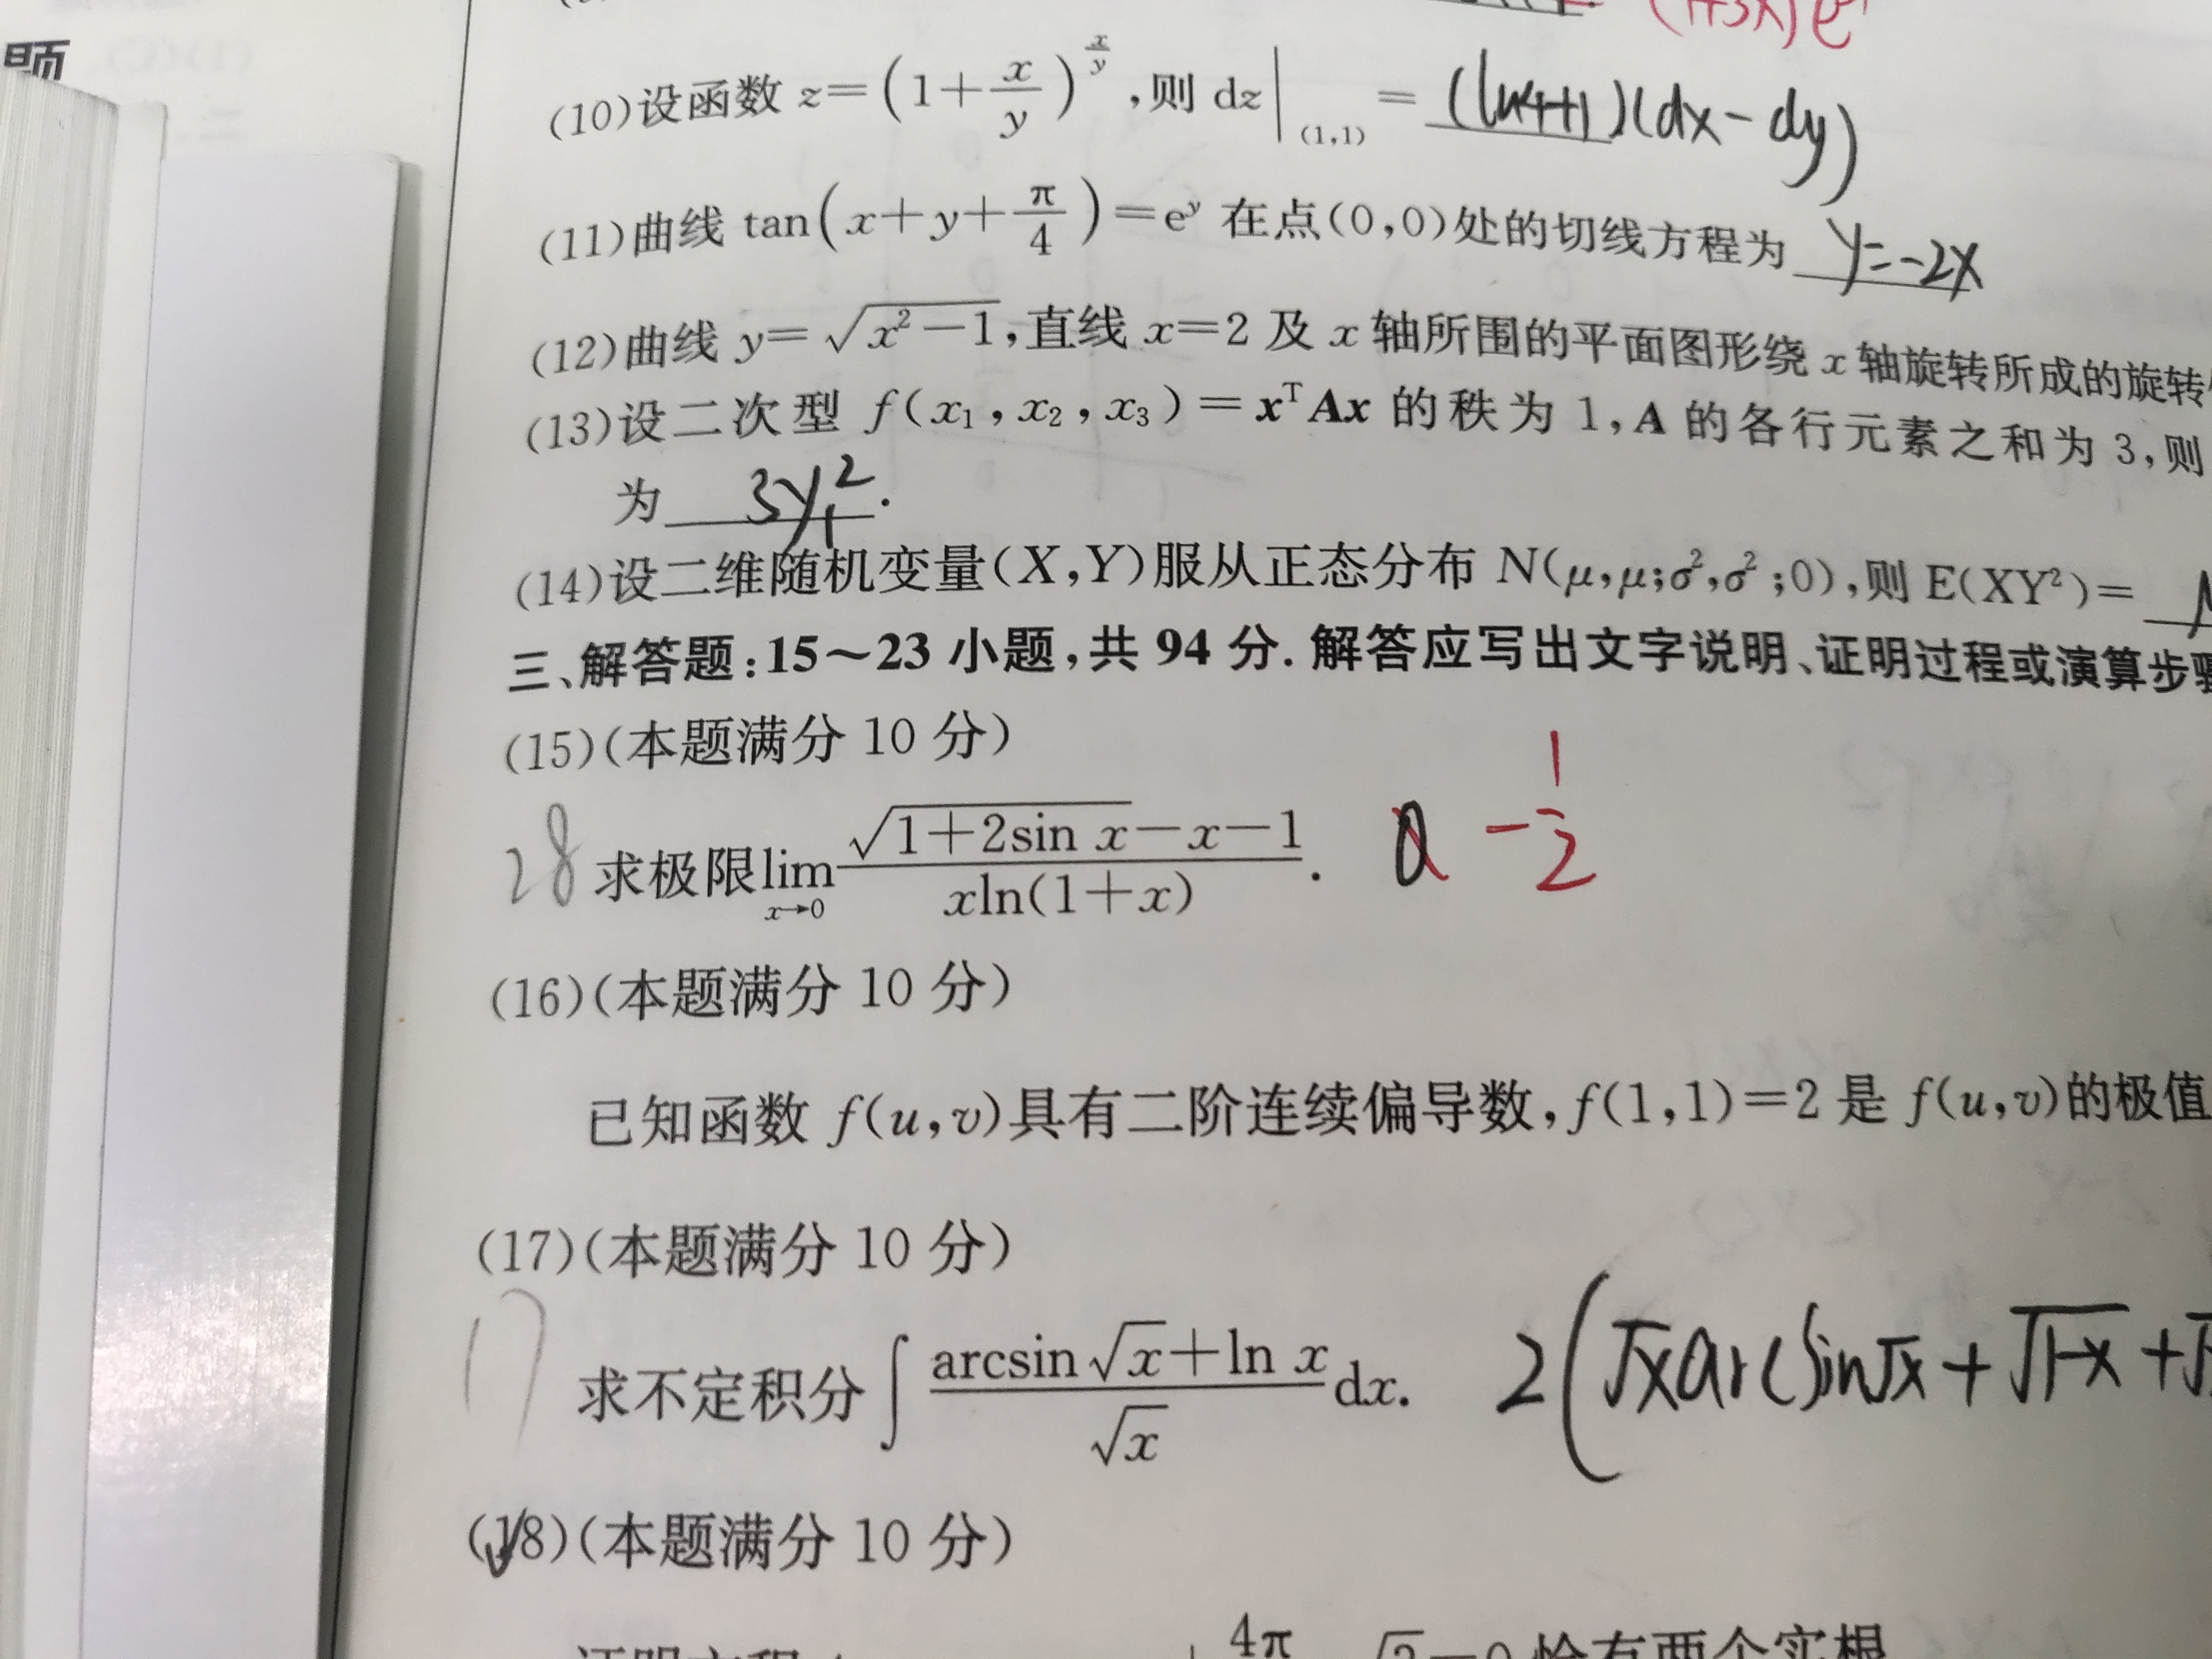 题
(1+3x)e
(10)设函数 z=(1+x/y)^(x/y),则 dz|(1,1) = (ln4+1)(dx-dy)
(11)曲线 tan(x+y+π/4)=e^y 在点(0,0)处的切线方程为 y=-2x
(12)曲线 y=√(x²-1),直线 x=2 及 x 轴所围的平面图形绕 x 轴旋转所成的旋转
(13)设二次型 f(x₁,x₂,x₃)=xᵀAx 的秩为 1,A 的各行元素之和为 3,则
为 3y₁².
(14)设二维随机变量(X,Y)服从正态分布 N(μ,μ;σ²,σ²;0),则 E(XY²)=
三、解答题:15～23 小题,共 94 分. 解答应写出文字说明、证明过程或演算步骤
(15)(本题满分 10 分)
28 求极限 lim x→0 (√(1+2sin x)-x-1)/(xln(1+x)). 0 -1/2
(16)(本题满分 10 分)
已知函数 f(u,v)具有二阶连续偏导数,f(1,1)=2 是 f(u,v)的极值
(17)(本题满分 10 分)
17 求不定积分∫(arcsin√x+ln x)/√x dx. 2(√x arcsin√x+√(1-x)+
(18)(本题满分 10 分)
4π =0 恰有两个实根